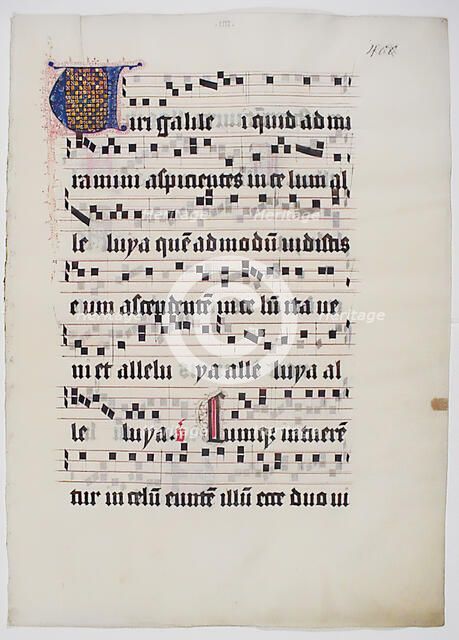 ·iiii·
400
Viri galile i quid ad mi
ramini aspicientes in ce lum al
le luya quē ad modū uidistis
e um ascendentē in ce lū ita ue
ni et allelu ya alle luya al
le luya. Cumq; intuerē
tur in celū euntē illū ecce duo ui
Heritage
Heritage
Heritage
Heritage